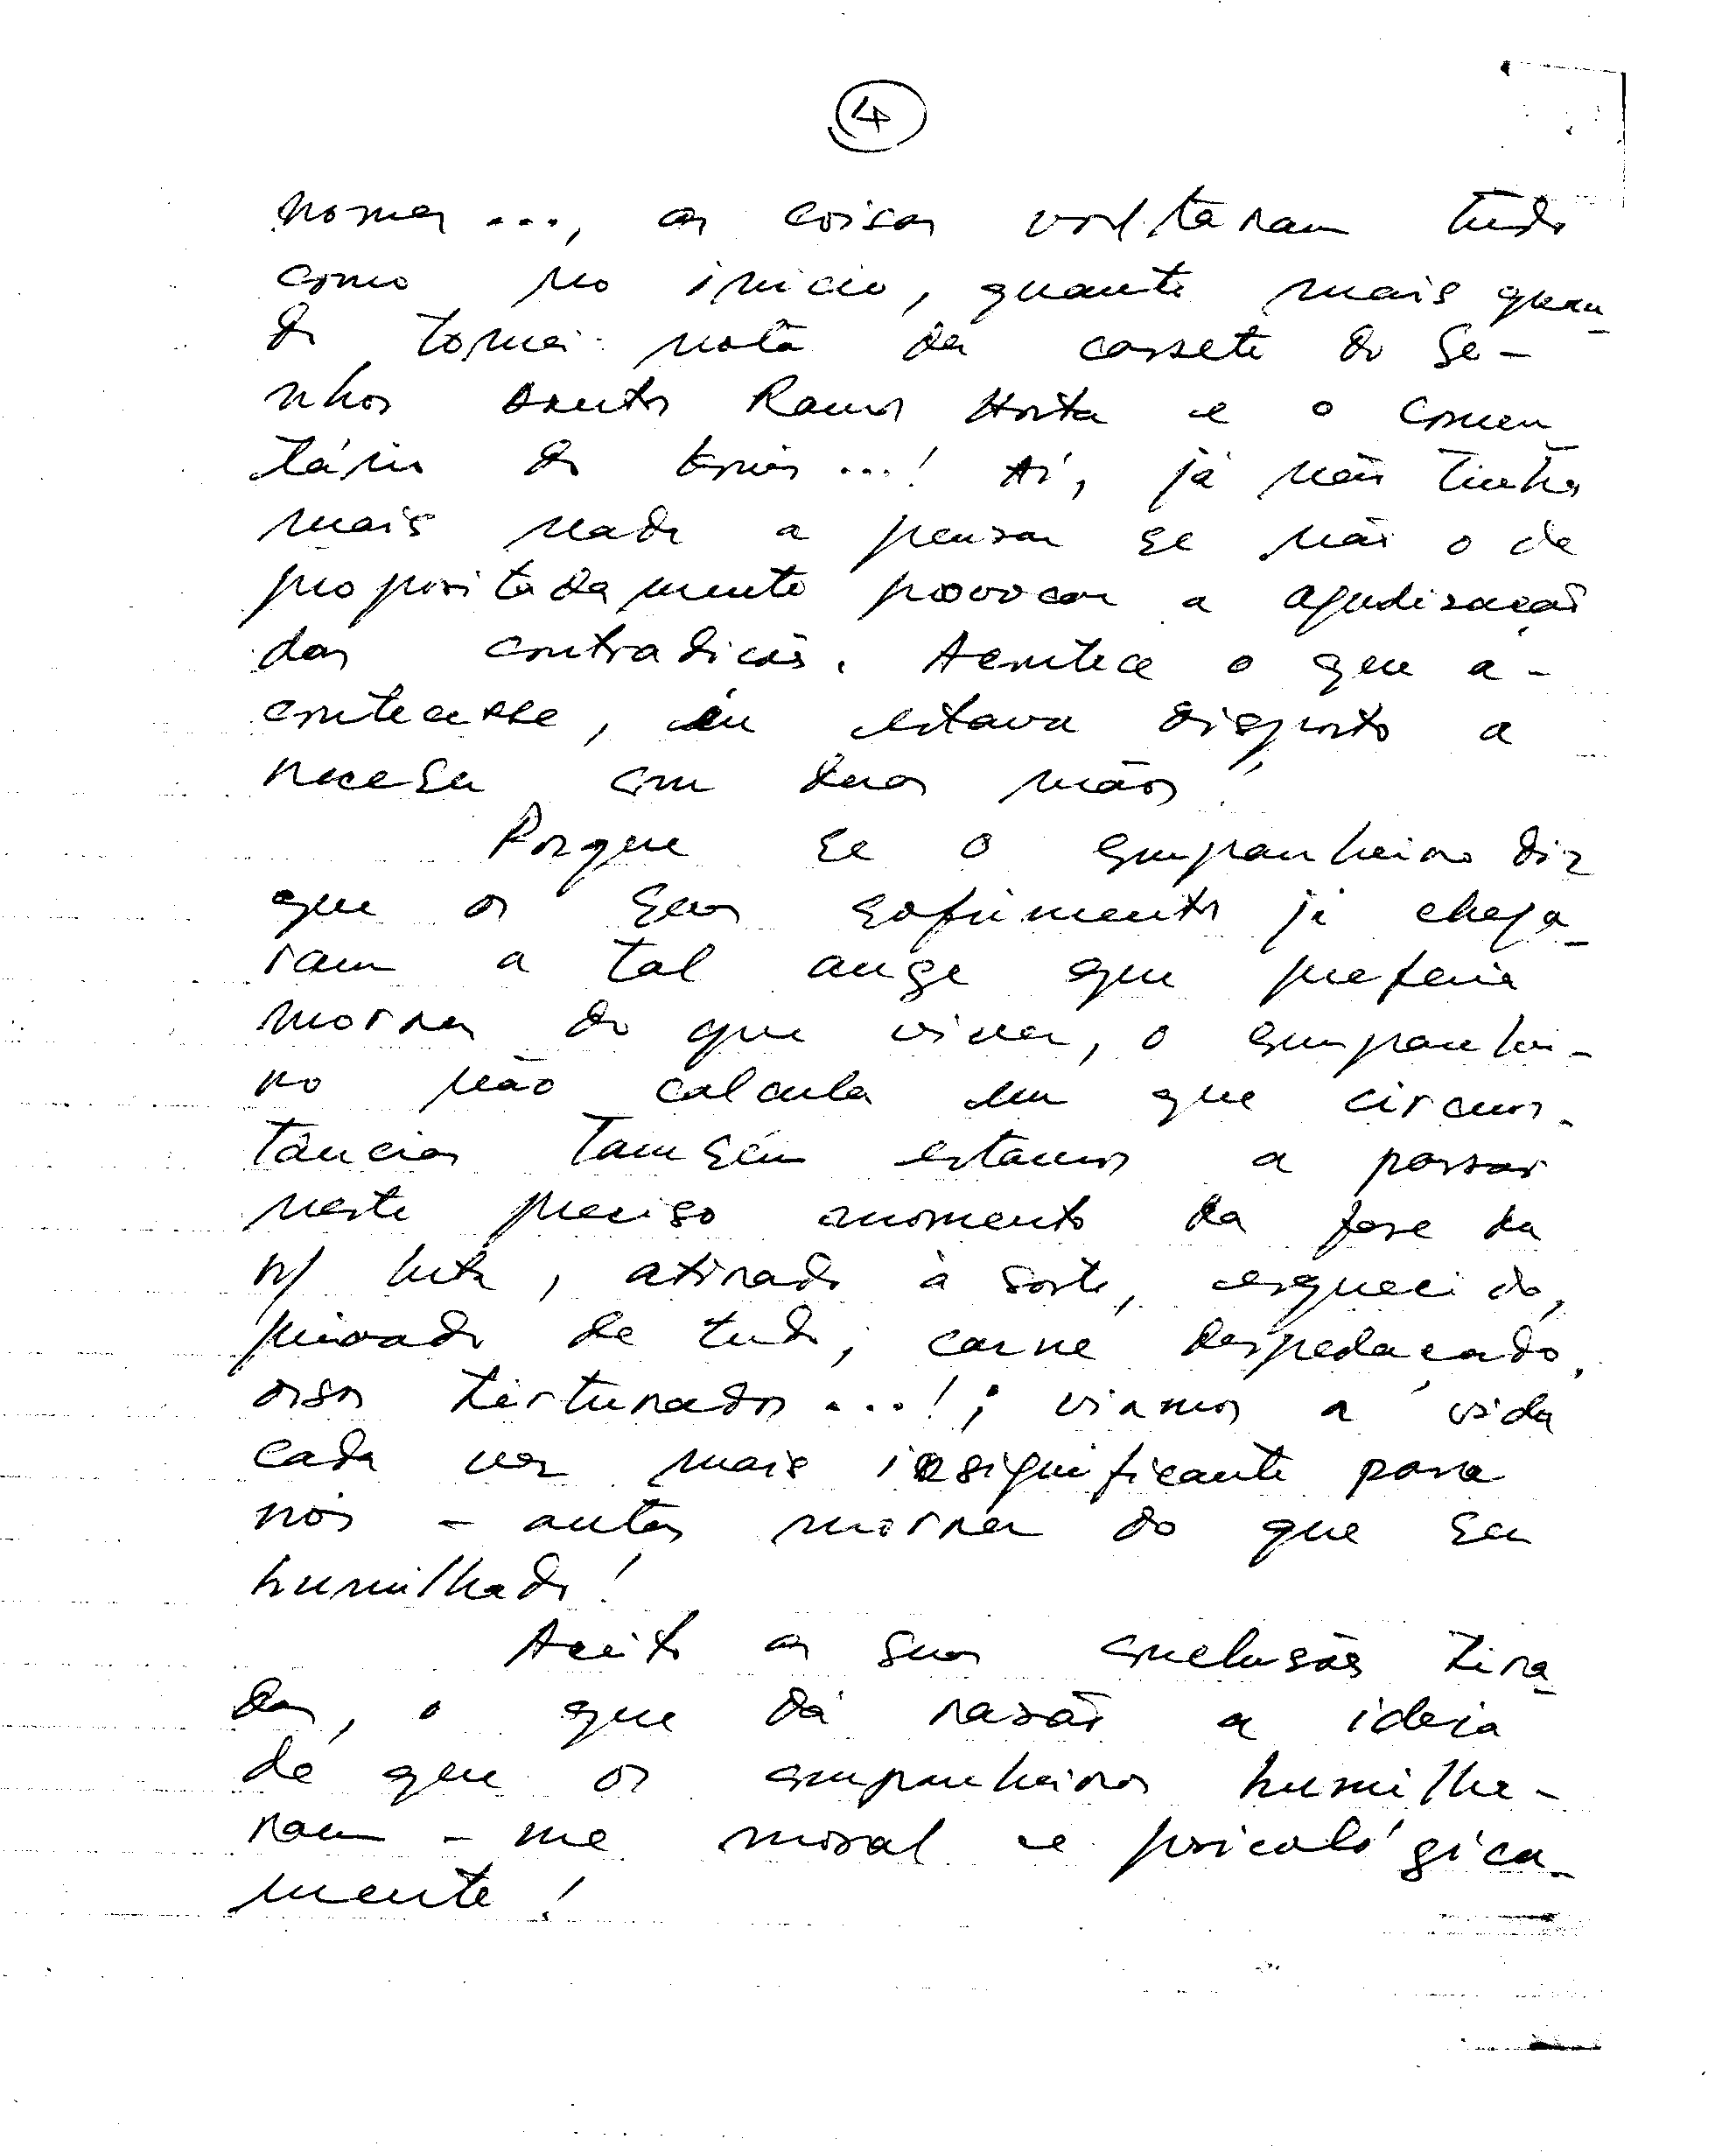 4
nomes ..., as coisas voltaram tudo
como no inicio, quanto mais quan_
do tomei nota da cassete do Se-
nhor Doutor Ramos Horta e o comen_
tário do ...! Aí, já não tinha
mais nada a pensar se não o de
propositadamente provocar a agudisação
das contradicões. Acontece o que a-
contecesse, eu estava disposto a
receber com duas mãos!
Porque se o companheiro diz
que os seus sofrimentos já chega_
ram a tal auge que preferia
morrer do que viver, o companhei-
ro não calcula em que circuns-
tâncias também estamos a passar
neste preciso momento da fase da
n/ luta, atirado à sorte, esquecido,
privado de tudo, carne despedaçado,
ossos torturados ...!; viamos a vida
cada vez mais insignificante para
nós - antes morrer do que ser
humilhado!
Aceito as suas conclusões tira_
das, o que dá rasão a ideia
de que os companheiros humilha-
ram-me moral e psicológica_
mente!